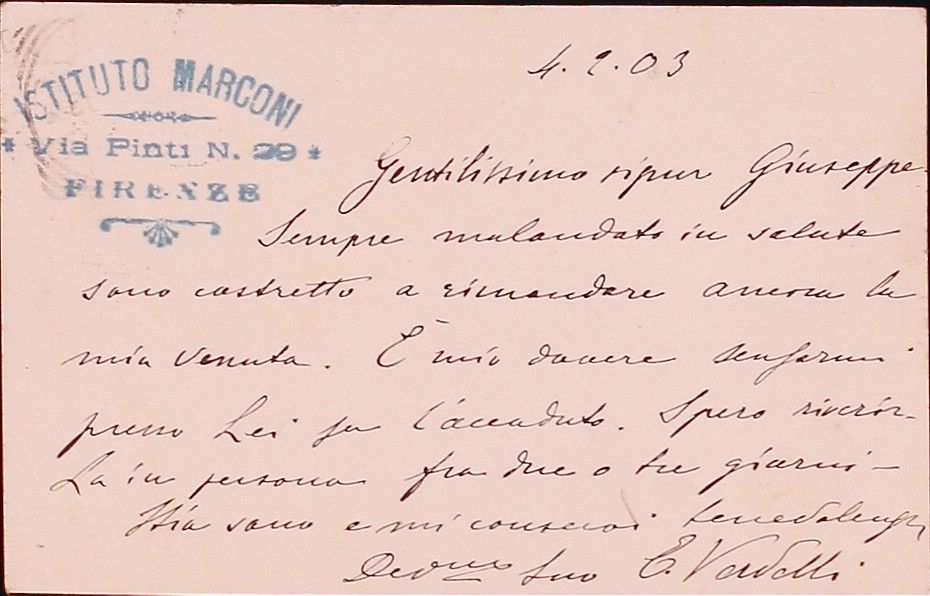 ISTITUTO MARCONI
* Via Pinti N. 29 *
FIRENZE
4.2.03
Gentilissimo signor Giuseppe
Sempre malandato in salute
sono costretto a rimandare ancora la
mia venuta. È mio dovere scusarmi
presso Lei per l'accaduto. Spero riverir-
La in persona fra due o tre giorni-
Stia sano e mi conservi
Dev.mo Suo E. Verdelli